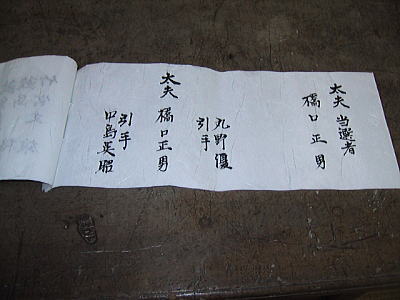 太夫 当選者
橋口正男
丸野優
引手
太夫 橋口正男
引手
中島英昭